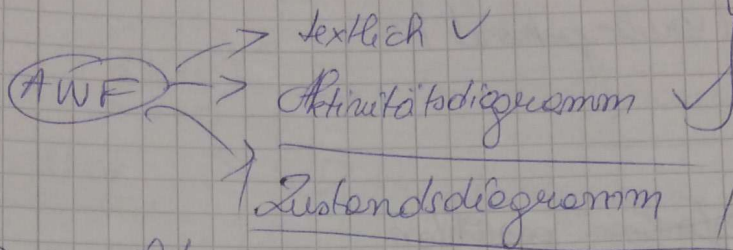 textlich ✓
AWF
Aktivitätsdiagramm ✓
Zustandsdiagramm